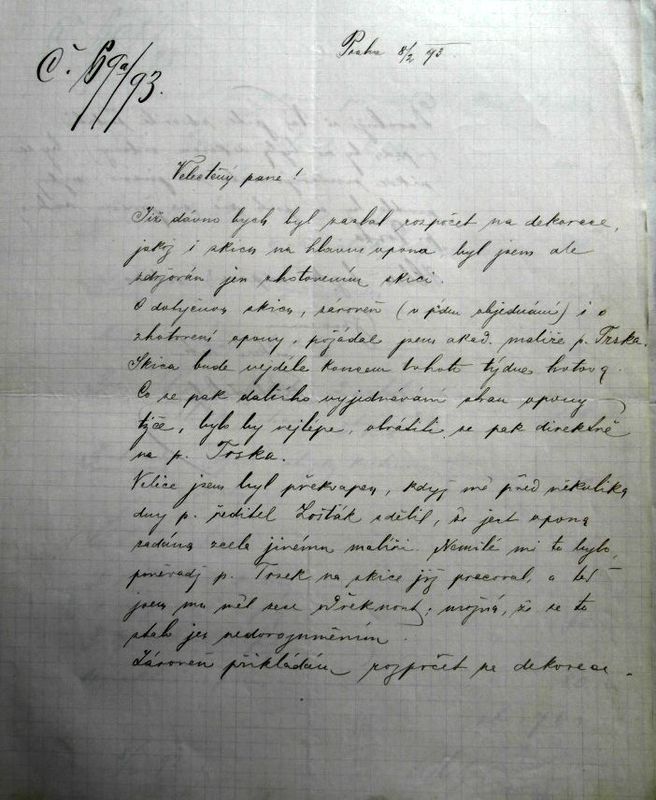 Č. 69a/93.
Praha 8/2 93.
Velectěný pane!
Již dávno bych byl zaslal rozpočet na dekorace,
jakož i skicu na hlavní oponu byl jsem ale
zdržován jen zhotovením skici.
O dotyčnou skicu, zároveň (v příp. objednání) i o
zhotovení opony, požádal jsem akad. malíře p. Trska.
Skica bude nejdéle koncem tohoto týdne hotova.
Co se pak dalšího vyjednávání stran opony
týče, bylo by nejlépe, obrátiti se pak direktně
na p. Trska.
Velice jsem byl překvapen, když mě před několika
dny p. ředitel sdělil, že jest opona
zadána zcela jinému malíři. Nemilé mi to bylo,
poněvadž p. Trsek na skice již pracoval, a teď
jsem mu měl zase odřeknout; možná, že se to
stalo jen nedorozuměním.
Zároveň přikládám rozpočet na dekorace.